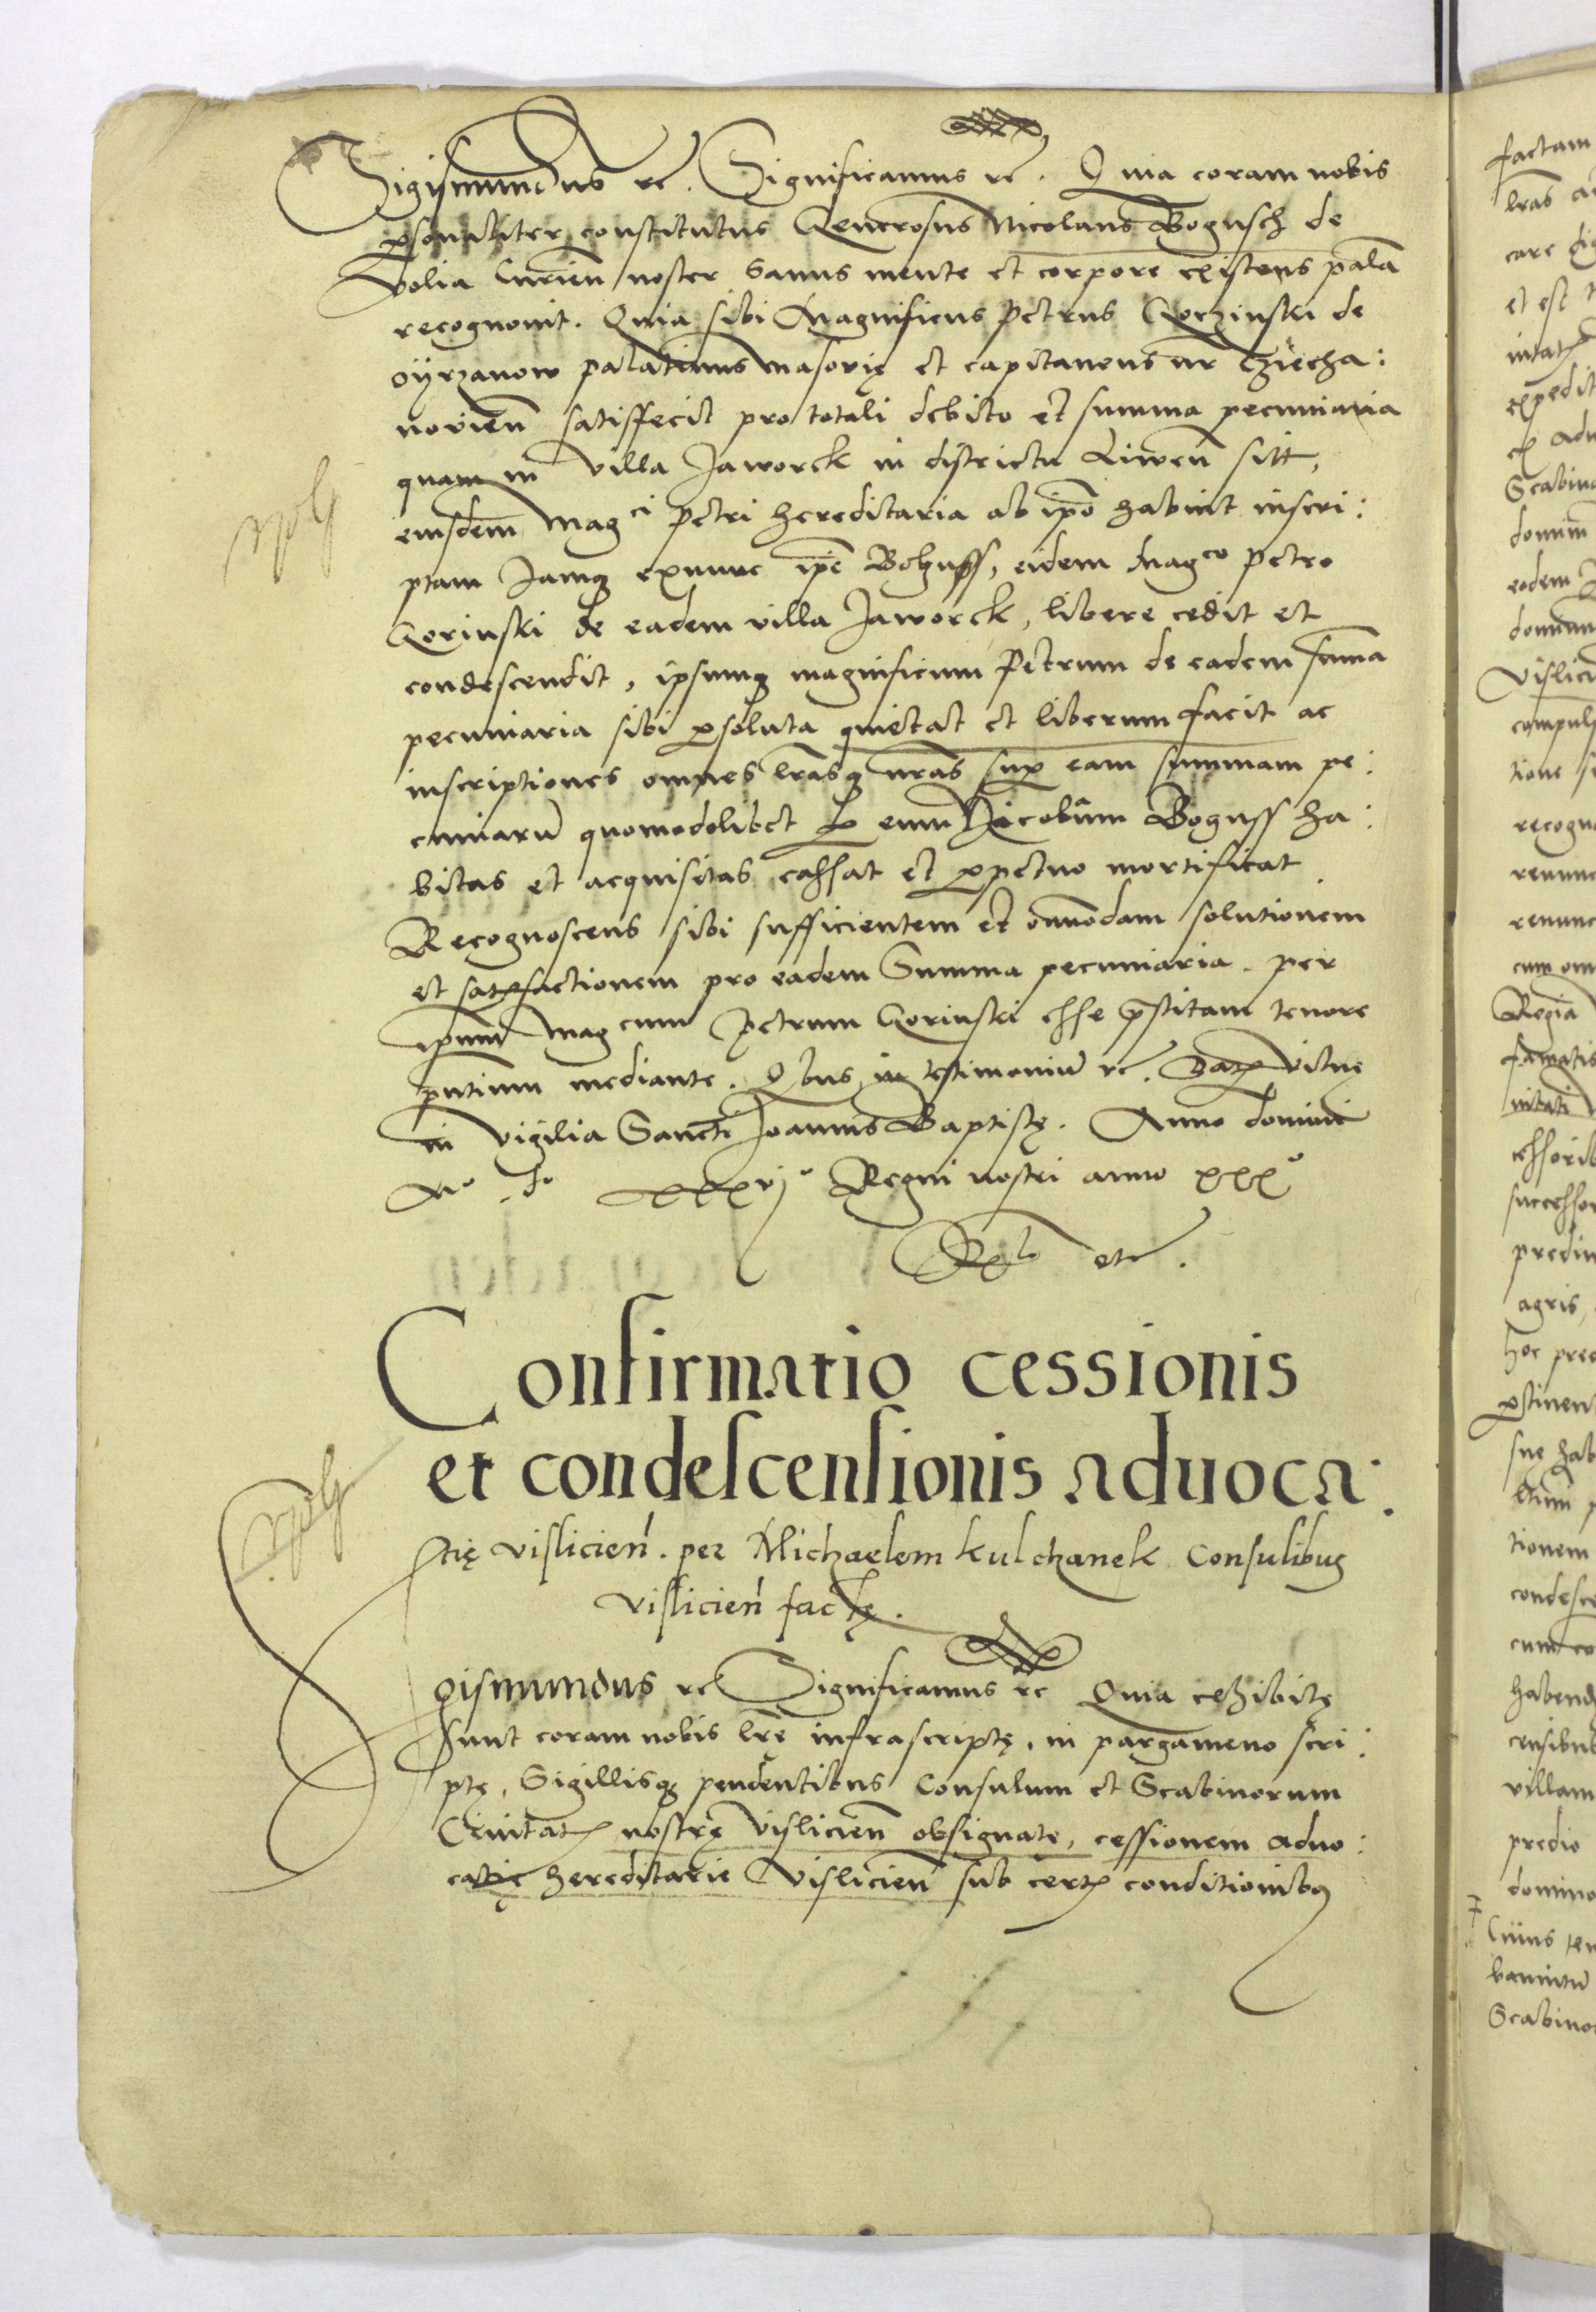 Sigismundus etc. Significamus etc. Quia coram nobis
psonaliter constitutus Generosus Nicolaus Bogusch de
volia Curien noster sanus mente et corpore existens palā
recognovit. Quia sibi Magnificus Petrus Gorzinski de
oÿrzanow palatinus Masovię et capitaneus nr Cziecha:
novien satisfecit pro totali debito et summa pecuniaria
quam in villa Jaworek in districtu Liwen sitt,
eiusdem Mag ci Petri hereditaria ab ipo habuit inscri:
ptam Jamq exnunc ipe Bohuss, eidem Mag co Petro
Gorinski de eadem villa Jaworek, libere cedit et
condescendit, ipsumq magnificum Petrum de eadem summa
pecuniaria sibi psoluta quietat et liberum facit ac
inscriptiones omnes lrasq nras sup eam summam pe:
cuniarū quomodolibet p eum Nicolaum Boguss ha:
bitas et acquisitas cassat et ppetuo mortificat
Recognoscens sibi sufficientem et omnōdam solutionem
et satisfactionem pro eadem Summa pecuniaria. per
ipum mag cum Petrum Gorinski esse pstitam tenore
pntium mediante. Qbus in testimoniū etc. Dat Vilnę
in vigilia Sancti Joannis Baptistę. Anno domini
Mo do xxxvjo Regni nostri anno xxxo
etc.
Confirmatio cessionis
et condescensionis advoca:
tię vislicień. per Michaelem kulchanek Consulibus
vislicień factę.
Sigismundus etc Significamus etc Quia exhibitę
sunt coram nobis lrę infrascriptę, in pargameno scri:
ptę, Sigillisq pendentibus Consulum et Scabinorum
Civitatis nostrę Vislicien obsignatę, cessionem advo:
catię hereditarie Vislicien sub certis conditionibus
factam
care
et est
expedit
Scabino
eodem
compuls
tione
recogn
renunc
renunc
Regia
successor
agris,
tionem
condesce
habend
censibus
villam
predio
domino
Cuius